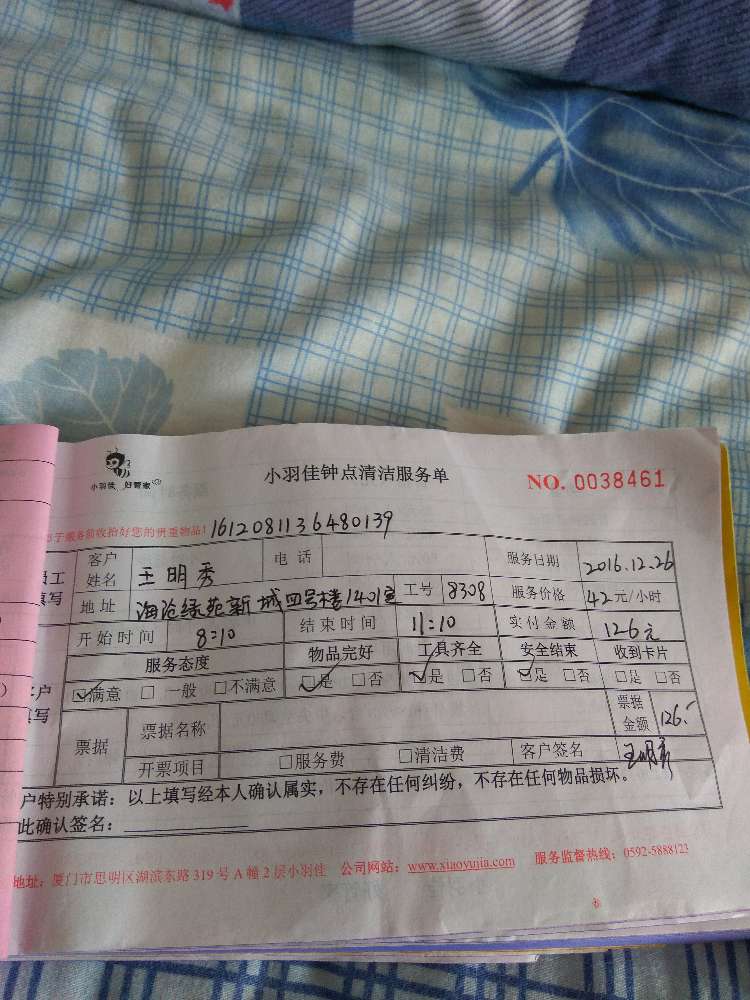 小羽佳 好管家
小羽佳钟点清洁服务单
NO. 0038461
于服务前收拾好您的贵重物品! 1612081136480139
员工填写 客户姓名 王明秀 电话 服务日期 2016.12.26
地址 海沧绿苑新城四号楼1401室 工号 8308 服务价格 42元/小时
开始时间 8:10 结束时间 11:10 实付金额 126元
客户填写 服务态度 物品完好 工具齐全 安全结束 收到卡片
☑满意 □一般 □不满意 ☑是 □否 ☑是 □否 ☑是 □否 □是 □否
票据 票据名称 票据金额 126.-
开票项目 □服务费 □清洁费 客户签名 王明秀
户特别承诺：以上填写经本人确认属实，不存在任何纠纷，不存在任何物品损坏。
此确认签名：
地址：厦门市思明区湖滨东路319号A幢2层小羽佳 公司网站：www.xiaoyujia.com 服务监督热线：0592-5888123